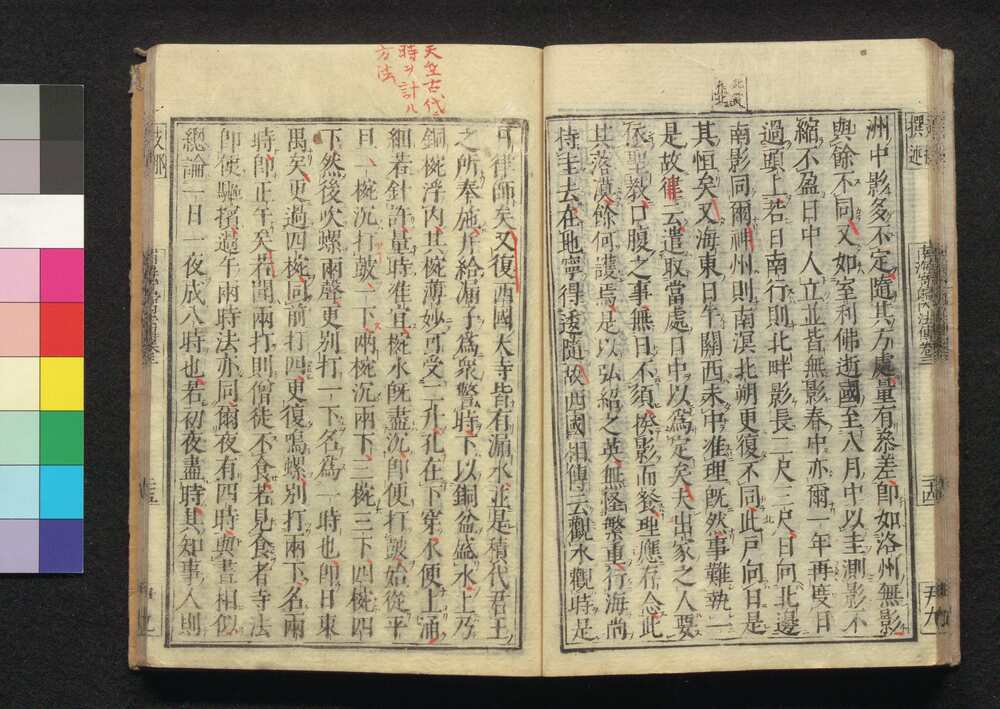 洲中影多不定隨其方處量有參差即如洛州無影
與餘不同又如室利佛逝國至八月中以圭測影不
縮不盈日中人立並皆無影春中亦爾一年再度日
過頭上若日南行則北畔影長二尺三尺日向北邊
南影同爾神州則南溟北朔更復不同此戶向日是
其恒矣又海東日午關西未中准理既然事難執一
是故律云遣取當處日中以為定矣夫出家之人要
依聖教口腹之事無日不須揆影而飡理應存念此
其落漠餘何護焉是以弘紹之英無怪繁重行海尚
持圭去在地寧得逶隨故西國相傳云觀水觀時是
天竺古代
時ヲ計ル
方法
曰律師矣又復西國大寺皆有漏水並是積代君王
之所奉施并給漏子為眾警時下以銅盆盛水上乃
銅椀浮內其椀薄妙可受二升孔在下穿水便上涌
細若針許量時准宜椀水既盡沉即便打鼓始從平
旦一椀沉打鼓一下兩椀沉兩下三椀三下四椀四
下然後吹螺兩聲更別打一下名為一時也即日東
禺矣更過四椀同前打四更復鳴螺別打兩下名兩
時即正午矣若聞兩打則僧徒不食若見食者寺法
即便驅擯過午兩時法亦同爾夜有四時與晝相似
總論一日一夜成八時也若初夜盡時其知事人則